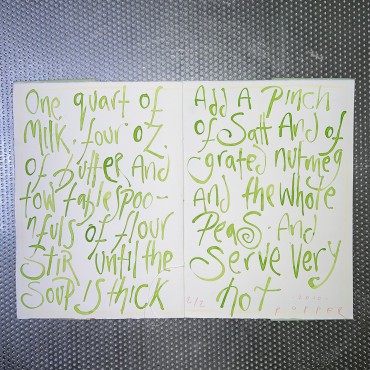 One quart of
Milk, four oz.
of Butter And
tow tablespoo-
nfuls of flour
Stir until the
Soup is thick
Add A Pinch
of Salt And of
grated nutmeg
And the whole
Peas. And
Serve Very
hot
2/2